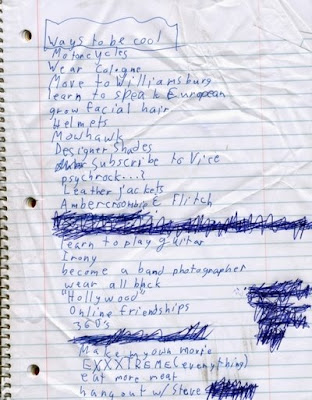 Ways to be cool
Motorcycles
Wear Cologne
Move to Williamsburg
learn to speak European
grow facial hair
Helmets
Mowhawk
Designer Shades
Subscribe to Vice
psychrock...?
Leather jackets
Ambercrombie & Flitch
learn to play guitar
Irony
become a band photographer
wear all black
"Hollywood"
Online friendships
360s
Make my own movie
EXXXTREME (everything)
eat more meat
hang out w/ Steve